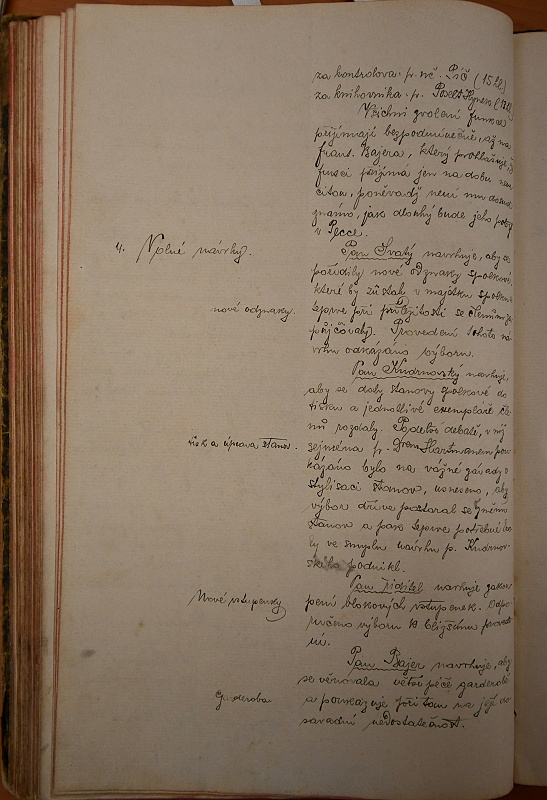 za kontrolora: p. uč. Pič (15 hl.)
za knihovníka: p. Poselt Hynek
Všichni zvolení funkce
přijímají bezpodmínečně, až na
Frant. Bajera, který prohlašuje, že
funkci přijímá jen na dobu neur
čitou, poněvadž není mu dosud
známo, jak dlouhý bude jeho pobyt
v Pecce.
4. Volné návrhy.
Pan Svatý navrhuje, aby se
pořídily nové odznaky spolkové,
které by zůstaly v majetku spolku a
nové odznaky.
teprve při příležitosti se členům za
půjčovaly. Provedení tohoto ná
vrhu odkázáno výboru.
Pan Kudrnovský navrhuje,
aby se daly stanovy spolkové do
tisku a jednotlivé exempláře čle
nům rozdaly. Po delší debatě, v níž
tisk a úprava stanov.
zejména p. Drem Hartmanem pou
kázáno bylo na vážné závady o
stylisaci stanov, usneseno, aby
výbor dříve postaral se změnu
stanov a pak teprve potřebné kro
ky ve smyslu návrhu p. Kudrnov
ského podnikl.
Pan řiditel navrhuje zakou
Nové vstupenky
pení blokových vstupenek. Odpo
ručeno výboru k bližšímu provede
ní.
Pan Bajer navrhuje, aby
se věnovala větší péče garderobě
Garderoba
a poukazuje při tom na její do
savadní nedostatečnost.